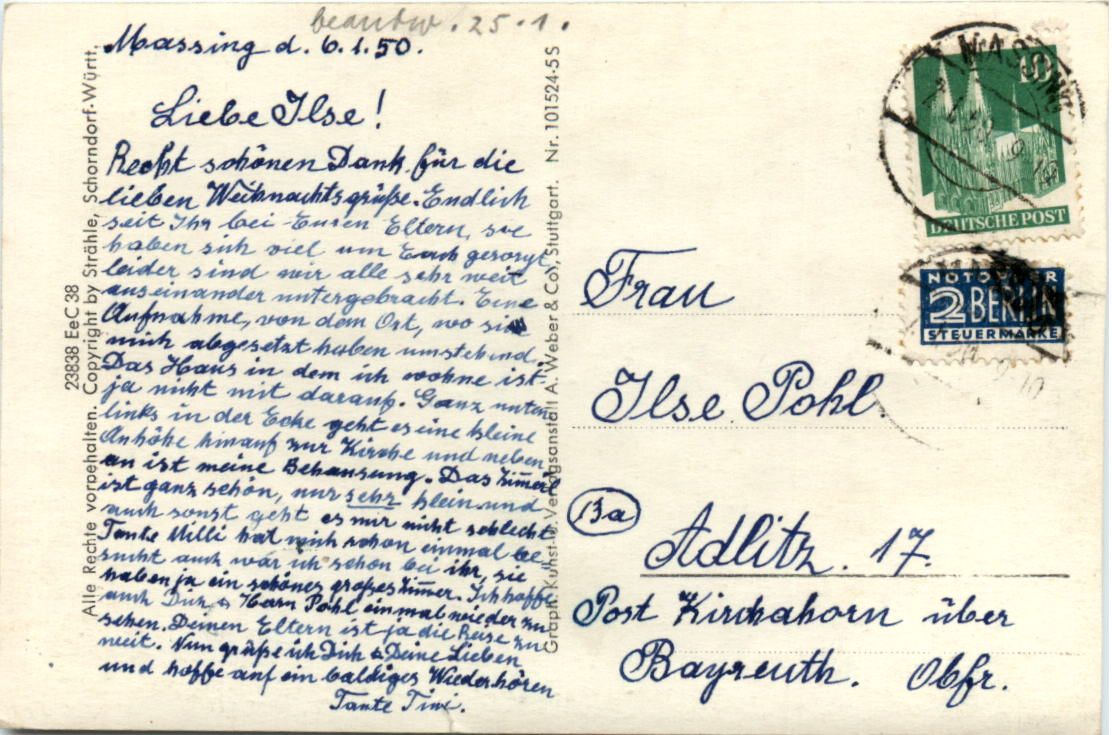 beantw. 25.1.
Massing d. 6.1.50.
Liebe Ilse!
Recht schönen Dank für die
lieben Weihnachtsgrüße. Endlich
seit Ihr bei Euren Eltern, sie
haben sich viel um Euch gesorgt,
leider sind wir alle sehr weit
auseinander untergebracht. Eine
Aufnahme, von dem Ort, wo sie
mich abgesetzt haben umstehend.
Das Haus in dem ich wohne ist
ja nicht mit darauf. Ganz unten
links in der Ecke geht es eine kleine
Anhöhe hinauf zur Kirche und neben
an ist meine Behausung. Das Zimmerl
ist ganz schön, nur sehr klein und
auch sonst geht es mir nicht schlecht
Tante Milli hat mich schon einmal be-
sucht auch war ich schon bei ihr, sie
haben ja ein schönes großes Zimmer. Ich hoffe
auch Dich & Herrn Pohl einmal wieder zu
sehen. Deinen Eltern ist ja die Reise zu
weit. Nun grüße ich Dich & Deine Lieben
und hoffe auf ein baldiges Wiederhören
Tante Tini.
23838 EeC 38
Alle Rechte vorbehalten. Copyright by Strähle, Schorndorf-Württ.
Graph. Kunst- u. Verlagsanstalt A. Weber & Co., Stuttgart. Nr. 101524-5S
MASSING
10
DEUTSCHE POST
NOTOPFER
2 BERLIN
STEUERMARKE
Frau
Ilse Pohl
13a
Adlitz. 17.
Post Kirchahorn über
Bayreuth. Obfr.